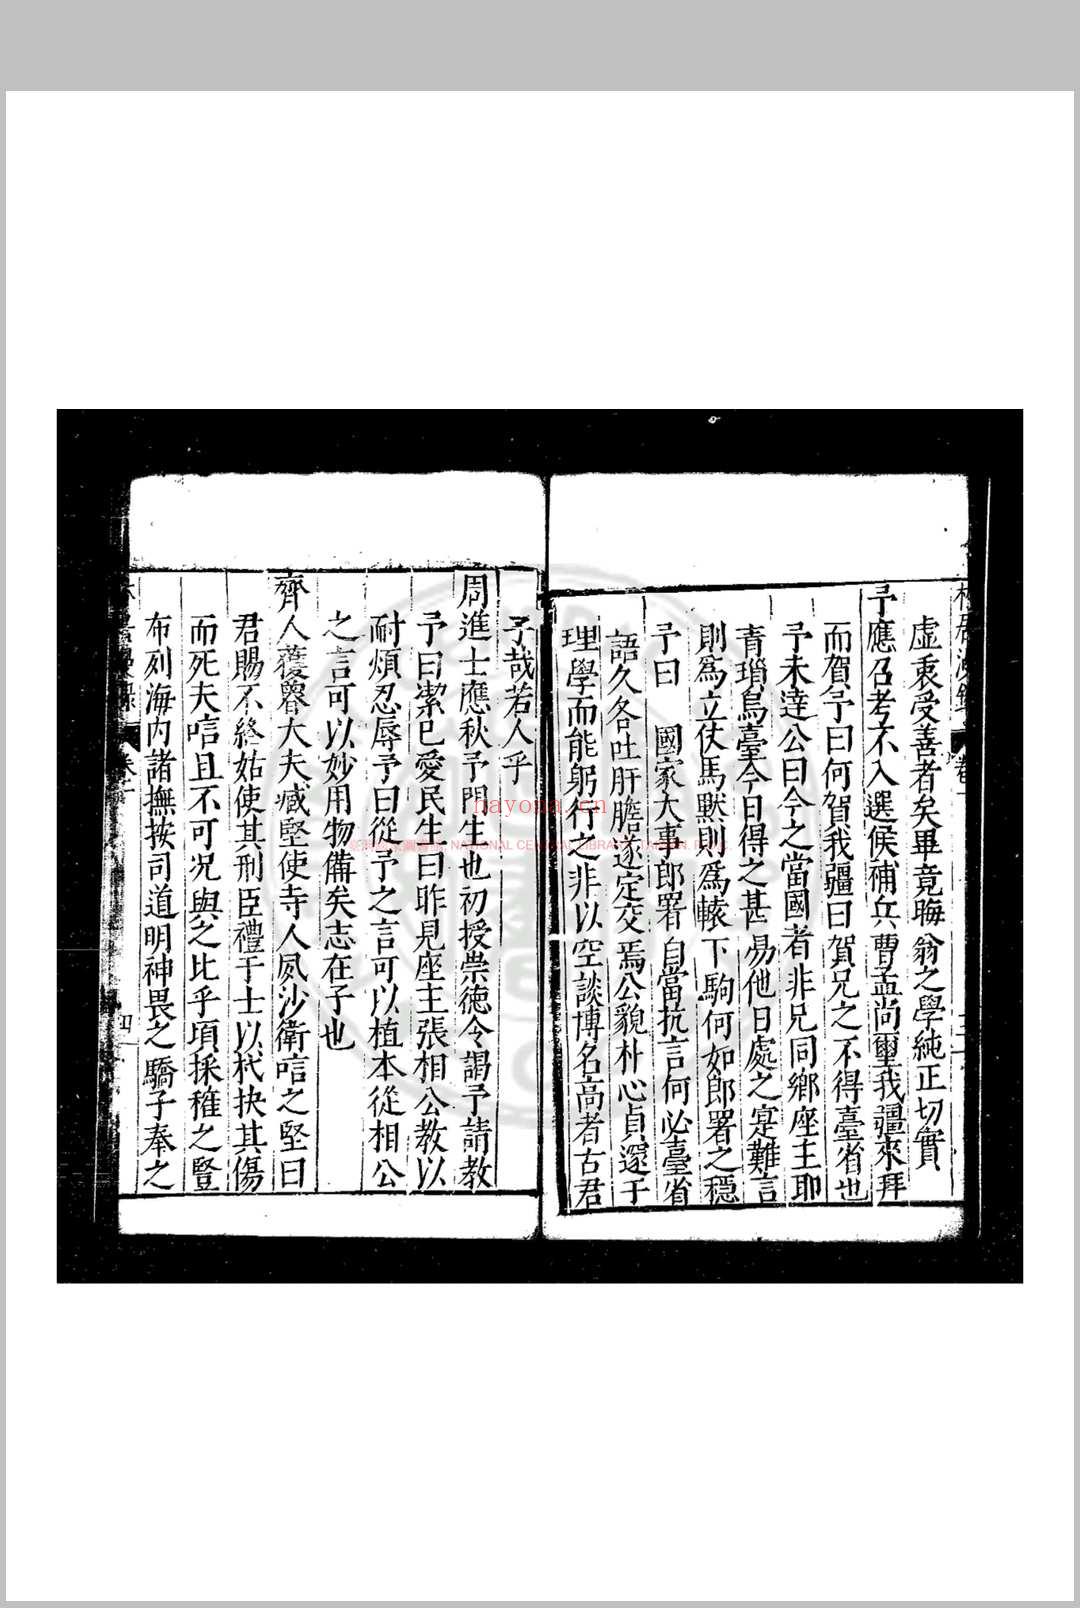 虛秉受善者矣畢竟晦翁之學純正切實
予應召考不入選候補兵曹孟尚璽我疆來拜
而賀予曰何賀我疆曰賀兄之不得臺省也
予未達公曰今之當國者非兄同鄉座主耶
青瑣烏臺今日得之甚易他日處之寔難言
則為立仗馬默則為轅下駒何如郎署之穩
予曰 國家大事郎署自當抗言何必臺省
語久各吐肝膽遂定交焉公貌朴心貞邃于
理學而能躬行之非以空談博名高者古君
子哉若人乎
周進士應秋予門生也初授崇德令謁予請教
予曰潔己愛民生曰昨見座主張相公教以
耐煩忍辱予曰從予之言可以植本從相公
之言可以妙用物備矣志在子也
齊人獲魯大夫臧堅使寺人夙沙衛唁之堅曰
君賜不終姑使其刑臣禮于士以杙抉其傷
而死夫唁且不可況與之比乎項採稚之豎
布列海內諸撫按司道明神畏之驕子奉之
卷一
四
nayona.cn
NATIONAL CENTRAL LIBRARY, TAIWAN, R.O.C.